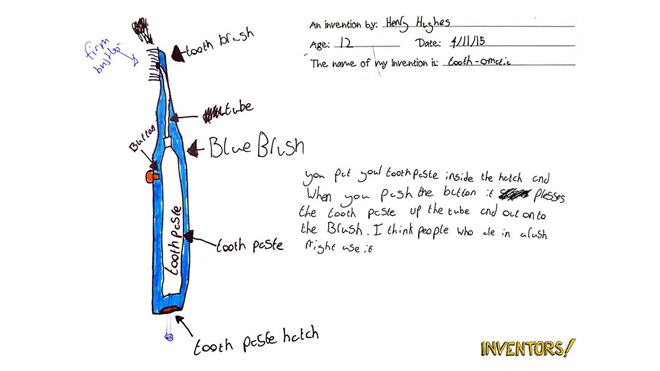 An invention by: Henry Hughes
Age: 12 Date: 4/11/15
The name of my invention is: tooth-omatic
tooth brush
firm
tube
Button
Blue Brush
you put your toothpaste inside the hatch and
When you push the button it presses
the tooth paste up the tube and out onto
the Brush. I think people who are in a rush
might use it
toothpaste
tooth paste
tooth paste hatch
INVENTORS!